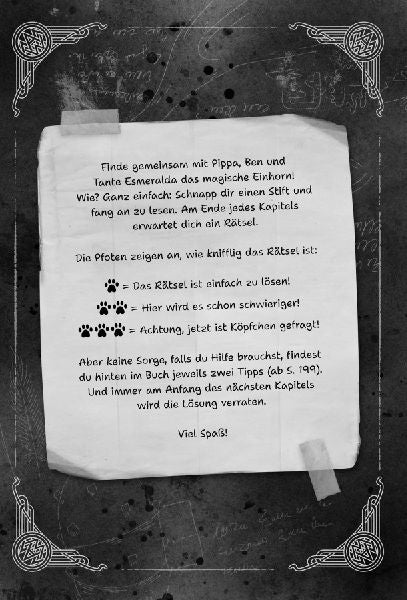 Finde gemeinsam mit Pippa, Ben und
Tante Esmeralda das magische Einhorn!
Wie? Ganz einfach: Schnapp dir einen Stift und
fang an zu lesen. Am Ende jedes Kapitels
erwartet dich ein Rätsel.
Die Pfoten zeigen an, wie knifflig das Rätsel ist:
= Das Rätsel ist einfach zu lösen!
= Hier wird es schon schwieriger!
= Achtung, jetzt ist Köpfchen gefragt!
Aber keine Sorge, falls du Hilfe brauchst, findest
du hinten im Buch jeweils zwei Tipps (ab S. 199).
Und immer am Anfang des nächsten Kapitels
wird die Lösung verraten.
Viel Spaß!